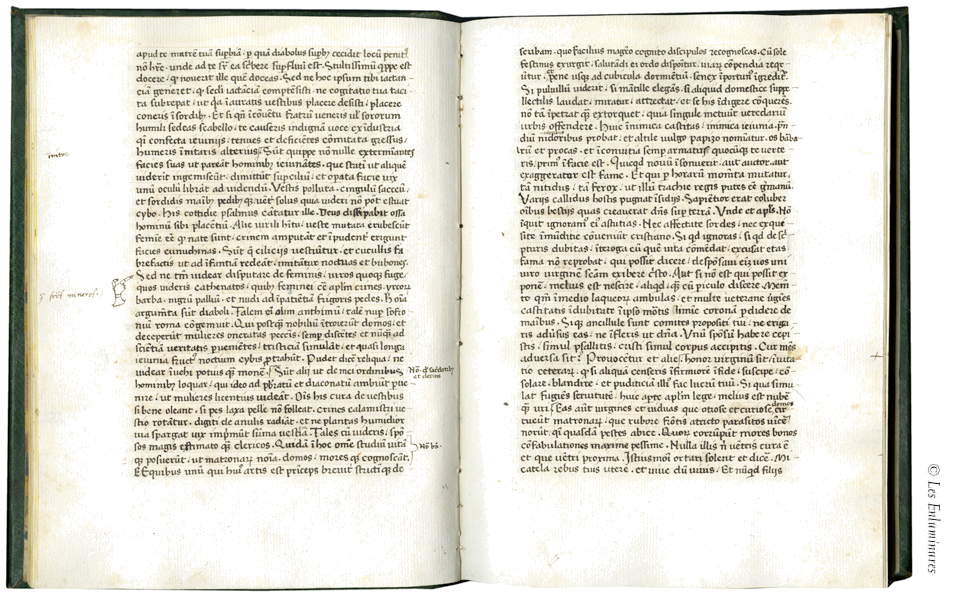 apud te matrē tuā supbiā. ꝑ quā diabolus supbꝰ cecidit locū penitꝰ
nō hr̄e. unde ad te sr̄ ea scbere supfluū est. Stultissimū qͥppe est
docere, qͦ nouerit ille quē doceas. Sed ne hoc ipsum tibi iactan
ciā generet, qͦ sc̄li iactāciā comptēsisti. ne cogitatio tua taci
ta subrepat, ut qͣ ī auratis uestibus placere desisti, placere
coneris ī sordibꝰ. Et si qn̄ ī cōuētu fratrū ueneris uł sororum
humili sedeas scabello, te causeris indignā. uoce ex īdustria
qͣ confecta ieiuniis, tenues et deficiētes cōmitata gressus,
humeris īnitaris alterius. Sūt quippe nōnulle exterminātes
facies suas ut pareāt hominibꝰ ieiunātes, que stati ut aliquē
uiderit ingemiscūt. dimittūt supciliū. et opata facie uix
unū oculū librāt ad uidendū. Vestis polluta. cingulū sacceū.
et sordidis maibꝰ pedibꝰqꝫ. uēter solus quia uideri nō pōt estuat
cybo. His cottidie psalmus cātatur ille. Deus dissipabit ossa
hominū sibi placentiū. Alie uirili hitu, ueste mutata erubescūt
femie ēē qͦ nate sunt, crinem amputāt et īpudenter erigunt
facies eunuchinas. Sūt que cilicijs uestiūtur. et cucullis fa
brefactis ut ad īfantiā redeāt. imitātur noctuas et bubones.
Sed ne tm̄ uidear disputare de feminis, uiros quoqꝫ fuge,
quos uideris cathenatos. quibꝰ feminei cē apl̄m crines, yrcorꝫ
barba. nigrū palliū. et nudi ad ī patiētiā frigoris pedes. Hͦ oīa
argumēta sūt diaboli. Talem et olim anthimū. tale nup sofro
niū roma cōgemuit. Qui postqͣ nobiliū ītroierūt domos, et
deceperūt mulieres oneratas peccis. semp disētes et nūqͣ ad
sciētiam ueritatis puenietes, tristiciā simulāt, et quasi longa
ieiunia furtꝰ noctium cybis ꝑtrahūt. Pudet dicē reliqua. ne
uidear īuehi potus qͣ monē. Sūt alij ut de mei ordinibus
hominibꝰ loquar, qui ideo ad pb̄ratū et diaconatū ambiūt pue
nire. ut mulieres licentius uideāt. Oīs his cura de uestibus
si bene oleant. si pes laxa pelle nō folleat. crines calamistri ue
stio rotātur. digiti de anulis radiāt. et ne plantas humidior
uia spargat uix imprimūt sūma uestia. Tales cū uideris, spō
sos magis estimato qͣ clericos. Quidā ī hoc omē studiū uitā
qͥ posuerūt, ut matronarꝫ noia, domos, mores qꝫ cognoscāt.
E quibus unū qui huiꝰ artis est princeps breuit strictiqꝫ de
imitꝫ
Nō. qͦ sacdotibꝰ
et dericis
Nō. bn̄.
scribam. quo facilius magr̄o cognito discipulos recognoscas. Cū sole
festinus exurgit. salutādi ei ordo dispoītur. uiarꝫ cōpendia reqꝛ
ūtur. pene usqꝫ ad cubicula dormiētiū. senex īportunꝰ īgreditꝰ.
Si puluillū uiderit, si mātille elegās. si aliquid domestice supp
llectilis laudat, miratur. attrectat. et se his īdigere cōquerēs.
nō tā īpetrat qͣ extorquet. quia singule metuūt ueredariū
urbis offendere. Huic inimica castitas, inimica ieiunia. prā
diū nidoribus probat. et altile uulgo papizo noīatur. os bāba
rū et procax. et ī conuitia semp armatū. quocūqꝫ te uerte
ris, primꝰ ī facie est. Quicqd nouū īsonuerit, aut auctor, aut
exaggeratur est fame. Et qui ꝑ horarū momēta mutatur,
tā nitidus, tā ferox, ut illū trachie regis putes cē gmanū.
Varijs callidus hostis pugnat īsidijs. Sapiētior erat coluber
oībus bestijs quas creauerat dn̄s sup terrā. Vnde et apłs. Nō
īquit ignoramꝰ eiꝰ astutias. Nec affectate sordes, nec exque
site īmūditie cōueniūt cristiano. Si qͥd ignoras, si qͥd de sc̄i
pturis dubitas, īterroga eū quē uita comēdat, excusat etas,
fama nō reprobat. qui possit dicere. despōsaui eīz uos uni
uiro uirginē castā exibere xr̄isto. Aut si nō est qui possit ex
ponē, melius est nescire aliqͥd, qͣ cū piculo discere. Memē
to qm̄ ī medio laqueorꝫ ambulas. et multe ueterane uiges
castitatis īdubitate ī ipso mōtis limie coronā ꝑdidere de
maibus. Si que ancillule sunt comites propositi tui. ne eriga
ris aduersus eas. ne īfleris ut dn̄a. Vnū spōsū habere cepi
stis, simul psallitis, cristi simul corpus accepitis. Cur mēs
aduersa sit? Prouocētur et alie, honor uirginū sit īuita
tio ceterarꝫ. qͥ si aliquā senseris īfirmiorē ī fide, suscipe, cō
solare, blandire, et pudicitiā illꝰ fac lucrū tuū. Si qua simu
lat fugiēs seruitutē. huic apte apl̄m lege. melius est nubē
qͣ uri. Eas aūt uirgines et uiduas que otiose et curiose cir
domos
cueūt matronarꝫ. que rubore frōtis attrito parasitos uicē
norūt. qͣ quasdā pestes abice. Quorꝫ corrūpūt mores bonos
cōfabulationes maxime pessime. Nulla illis nī uētris cura ē
et que uētri proxima. Istiusmōi ortari solent et dicē. Mi
catella rebus tuis utere. et uiue dū uiuis. Et nūqd filijs
© Les Enluminures